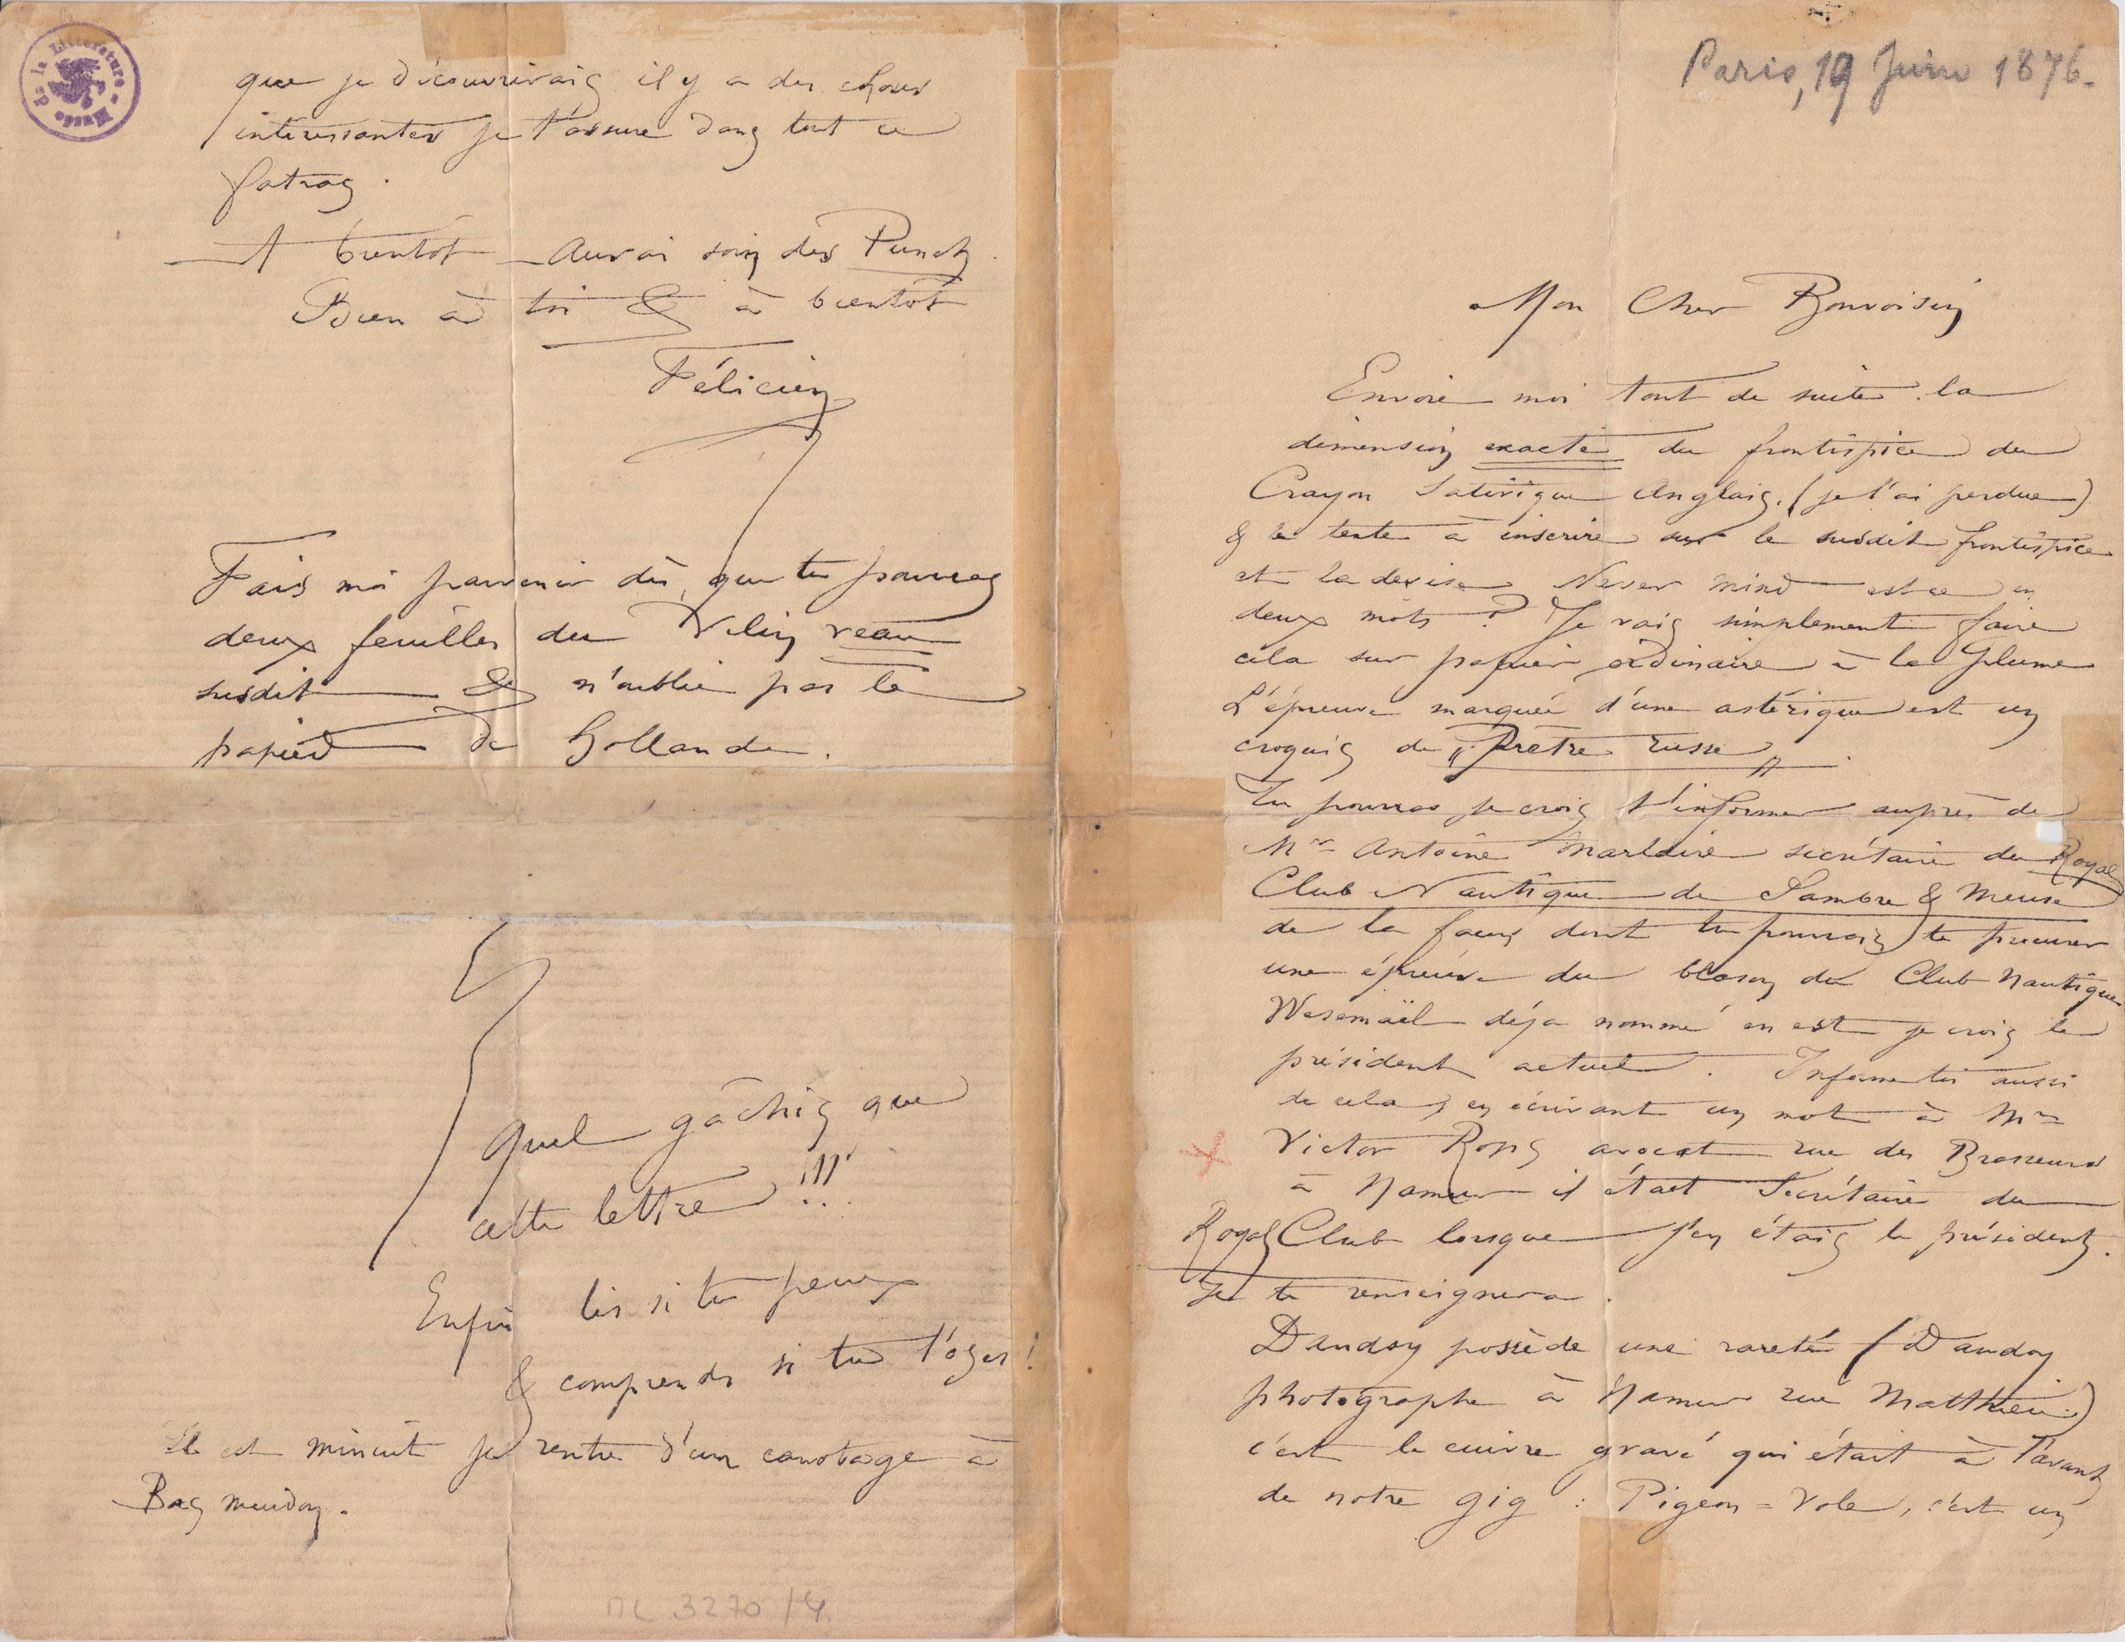 Paris, 19 Juin 1876.
Mon Cher Bonvoisin
Envoie moi tout de suite la
dimension exacte du frontispice du
Crayon Satirique Anglais. (je l'ai perdue)
& le texte à inscrire sur le susdit frontispice
et la devise Never mind est ce en
deux mots ? Je vais simplement faire
cela sur papier ordinaire à la plume
L'épreuve marquée d'une astérique est un
croquis de „Prêtre russe„.
Tu pourras je crois t'informer auprès de
Mr Antoine secrétaire du Royal
Club Nautique de Sambre & Meuse
de la façon dont tu pourrais te procurer
une épreuve du blason du Club Nautique
Wesemaël déja nommé en est je crois le
président actuel. Informe toi aussi
de cela, en écrivant un mot à Mr
Victor Rops avocat rue des Brasseurs
à Namur il était Secrétaire du
Royal Club lorsque j'en étais le président.
Il te renseignera.
Dandoy possède une rareté (Dandoy
photographe à Namur rue Matthieu.)
c'est le cuivre gravé qui était à l'avant
de notre gig : Pigeon = Vole, c'est un
Musée de la Littérature
que je découvrirais il y a des choses
intéressantes je t'assure dans tout ce
fatras.
A bientôt – Aurai soin des Punch.
Bien à toi & à bientôt
Félicien
Fais moi parvenir dès que tu pourras
deux feuilles du Velin veau
susdit & n'oublie pas le
papier de hollande.
Quel gâchis que
cette lettre !!!
Enfin lis si tu peux
& comprends si tu l'oses !
Il est minuit je rentre d'un canotage à
Bas meudon.
ML 3270/4.